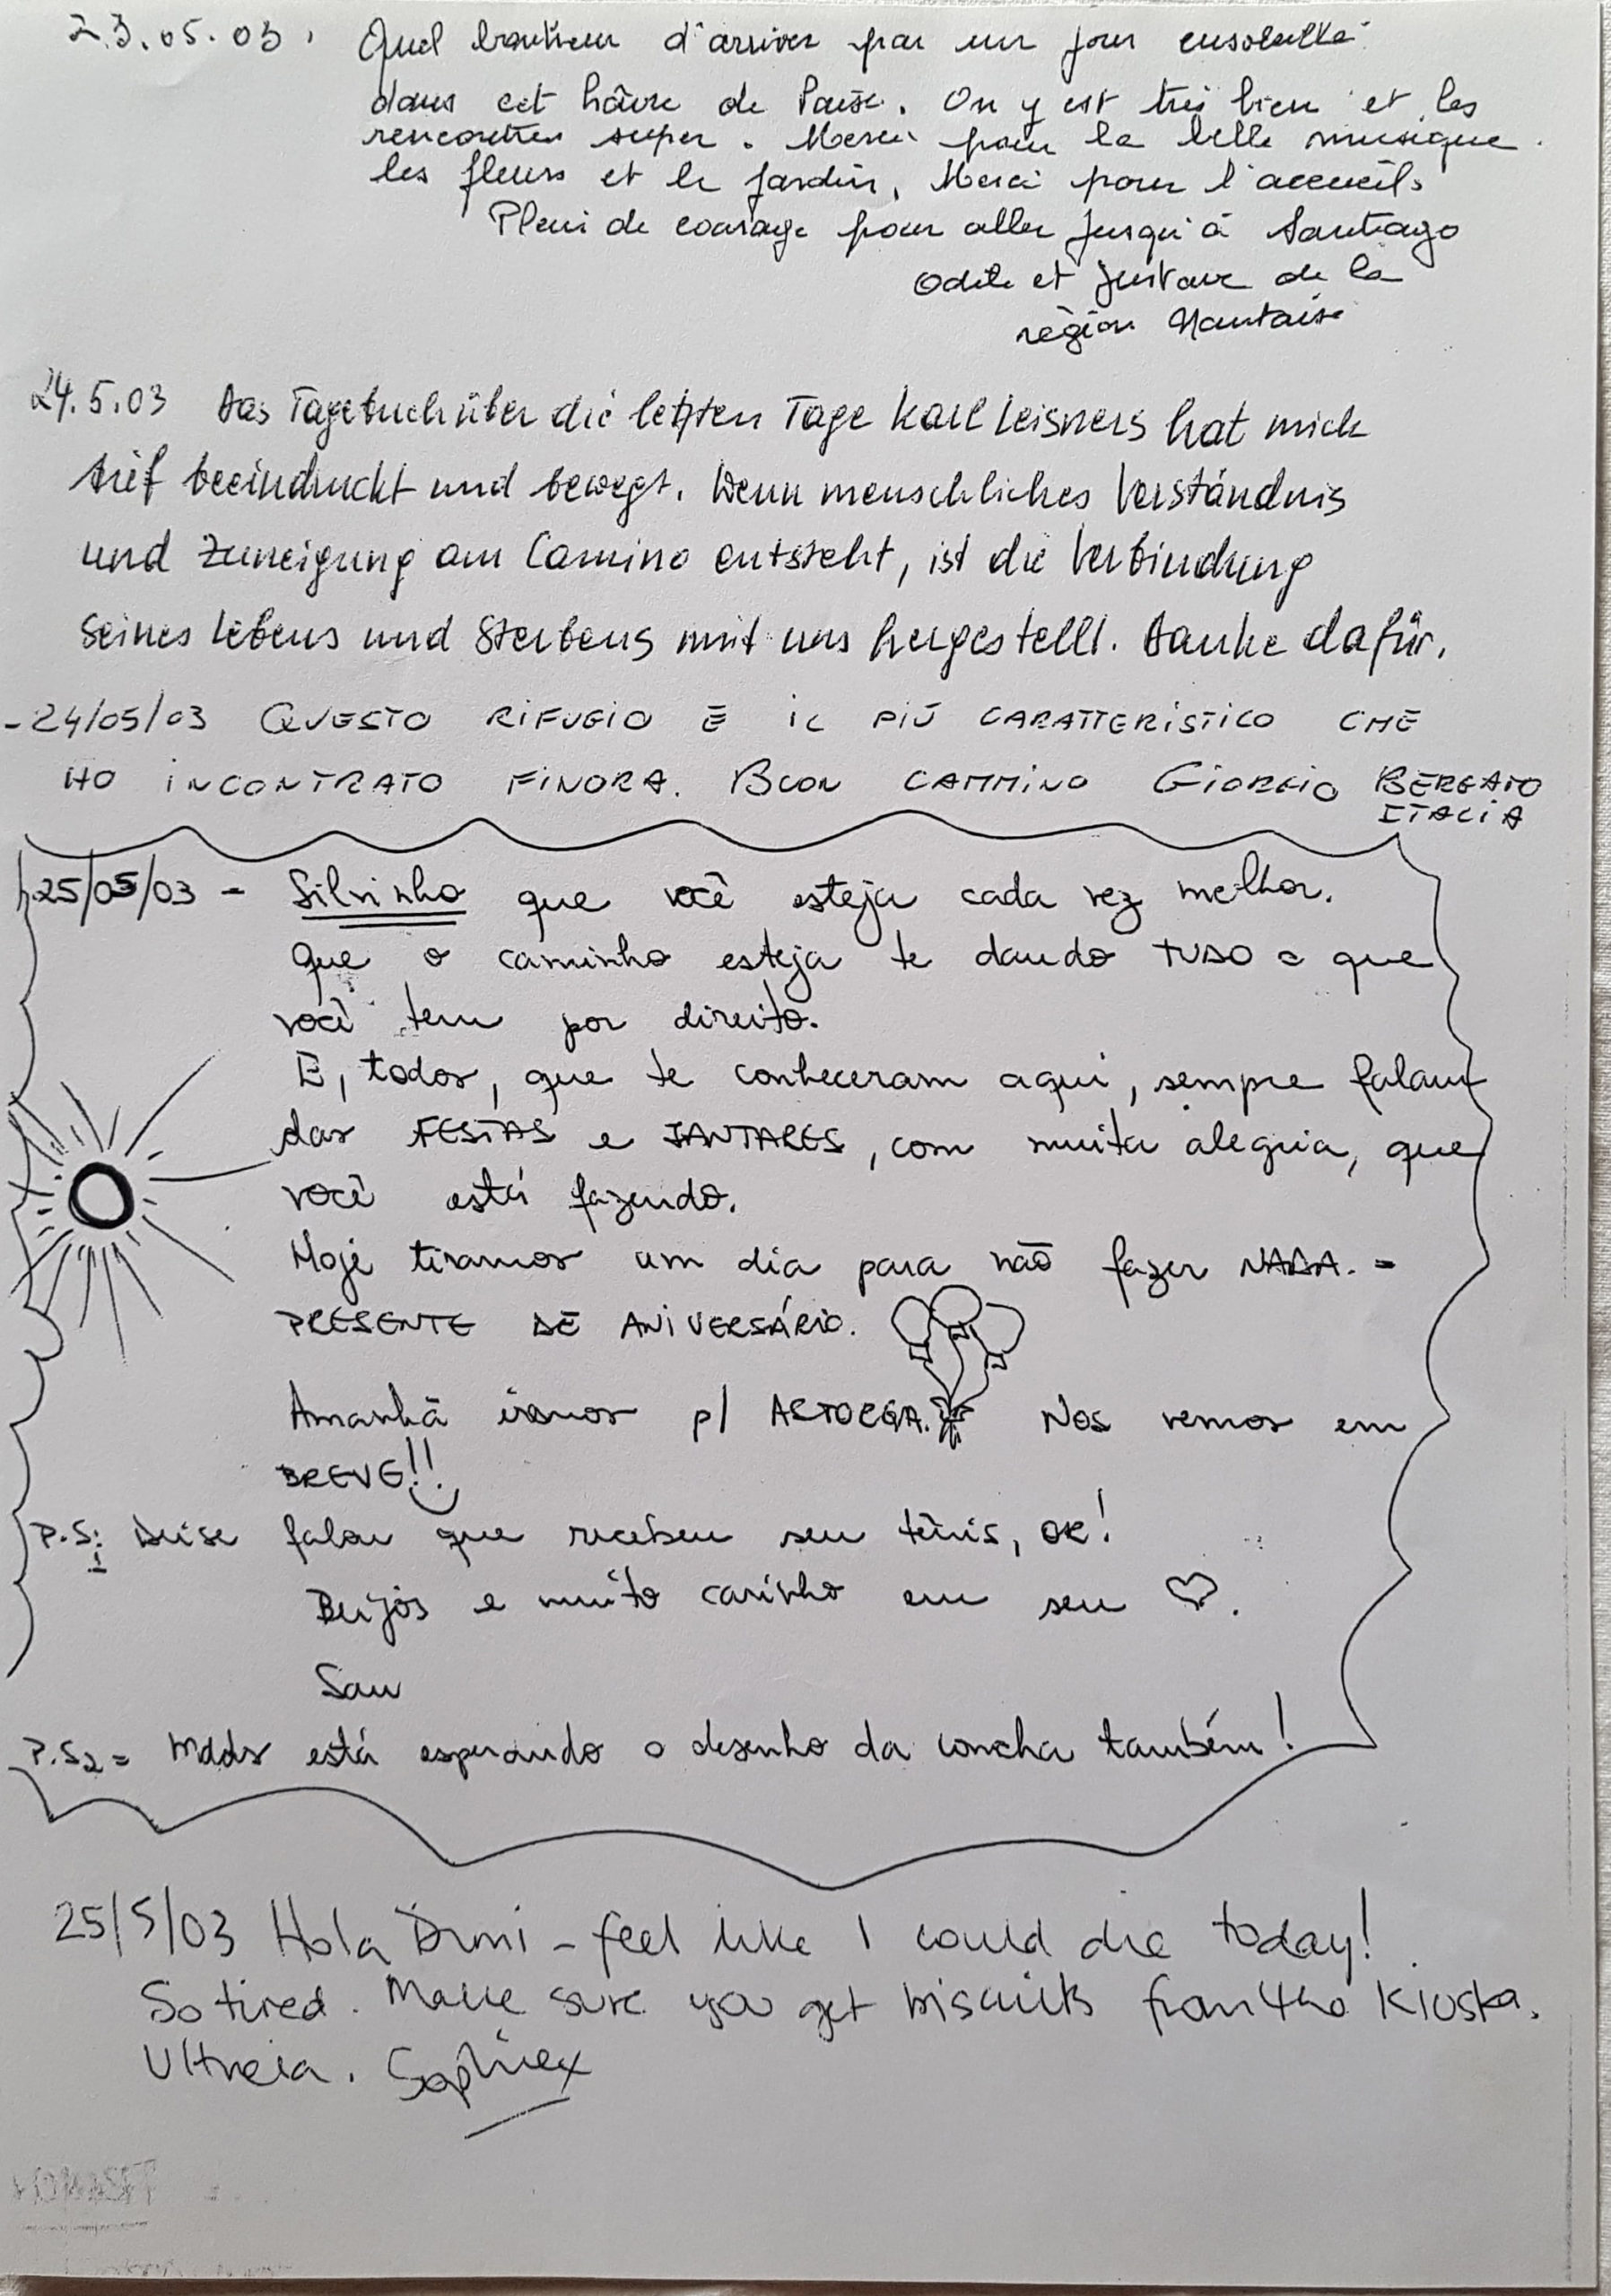 23.05.03. Quel bonheur d'arriver par un jour ensoleillé
dans cet hâvre de Paix. On y est très bien et les
rencontres super. Merci pour la belle musique.
les fleurs et le jardin, Merci pour l'accueil.
Plein de courage pour aller jusqu'à Santiago
Odile et Gustave de la
région Nantaise
24.5.03 Das Tagebuch über die letzten Tage Karl Leisners hat mich
tief beeindruckt und bewegt. Wenn menschliches Verständnis
und Zuneigung am Camino entsteht, ist die Verbindung
seines Lebens und Sterbens mit uns hergestellt. Danke dafür.
- 24/05/03 QUESTO RIFUGIO È IL PIÙ CARATTERISTICO CHE
HO INCONTRATO FINORA. BUON CAMMINO GIORGIO BERGAMO
ITALIA
25/05/03 - Silvinho que você esteja cada vez melhor.
Que o caminho esteja te dando TUDO o que
você tem por direito.
E, todos, que te conheceram aqui, sempre falam
das FESTAS e JANTARES, com muita alegria, que
você está fazendo.
Hoje tiramos um dia para não fazer NADA. =
PRESENTE DE ANIVERSÁRIO.
Amanhã iremos p/ ASTORGA. Nos vemos em
BREVE!!
P.S.1 Deise falou que recebeu seu tênis, OK!
Beijos e muito carinho em seu ♡.
San
P.S2 = está esperando o desenho da concha também!
25/5/03 Hola - feel like I could die today!
So tired. Make sure you get biscuits from the Kioska.
Ultreia. Sophie x